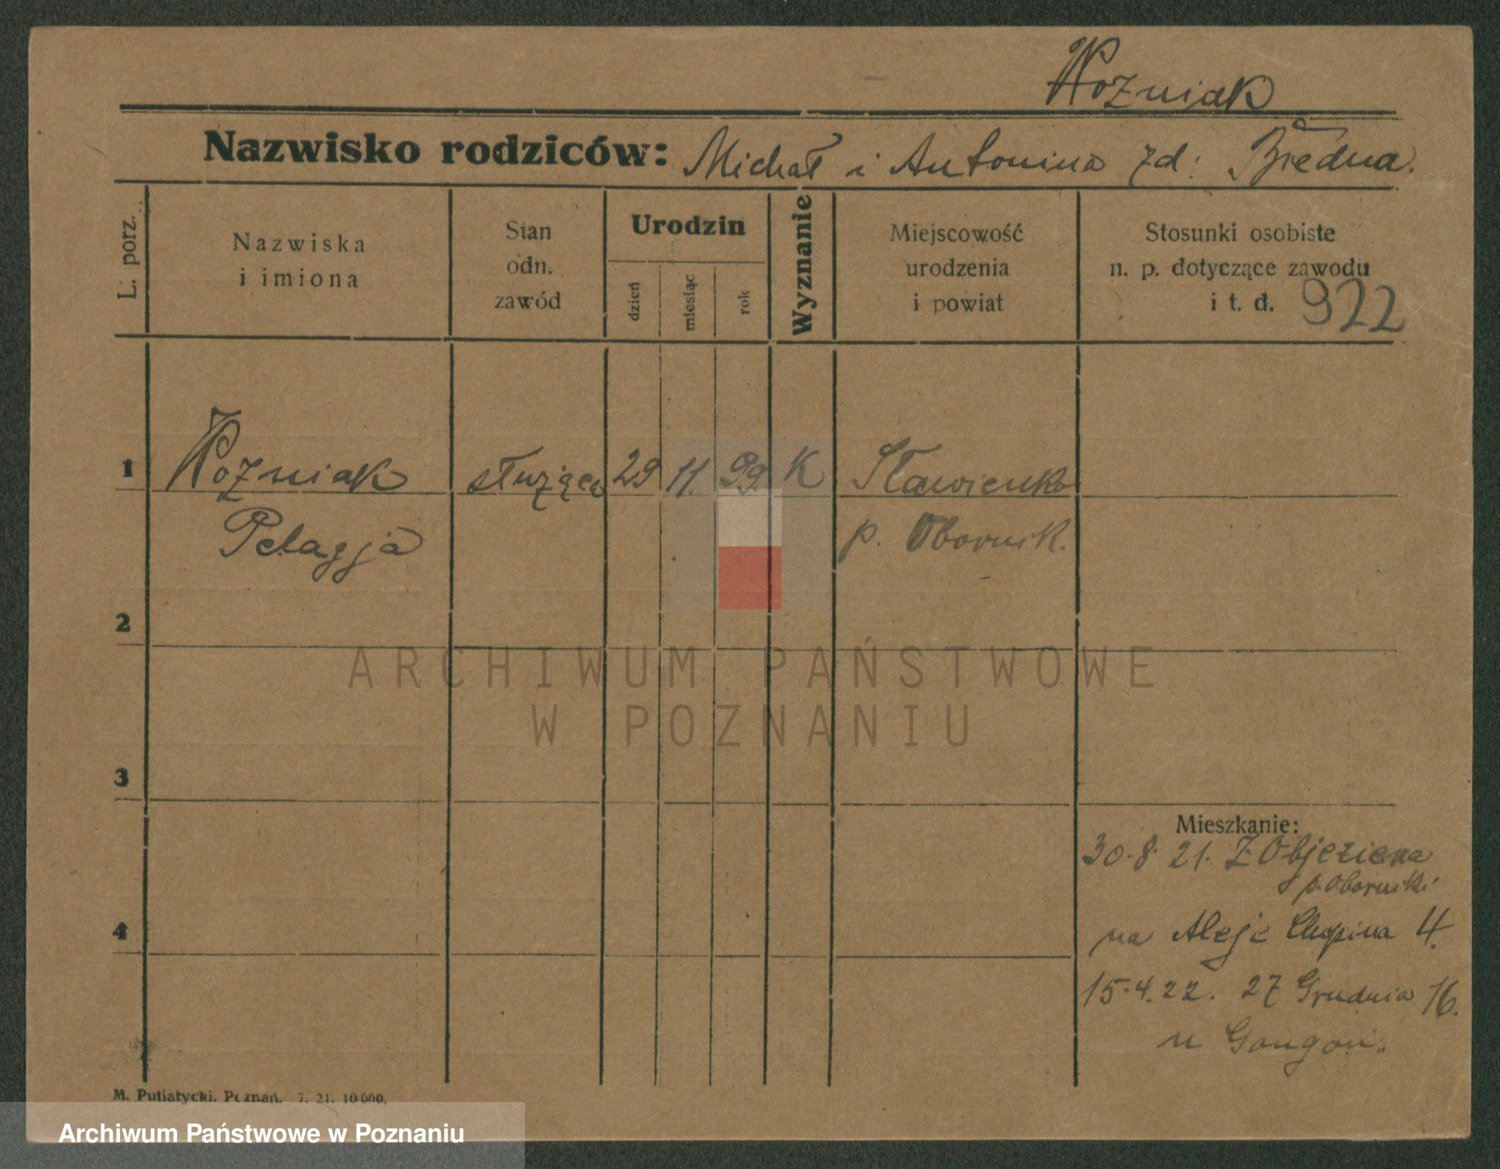 Woźniak
Nazwisko rodziców: Michał i Antonina zd: Biedna.
L. porz.
Nazwiska
i imiona
Stan
odn.
zawód
Urodzin
dzień
miesiąc
rok
Wyznanie
Miejscowość
urodzenia
i powiat
Stosunki osobiste
n. p. dotyczące zawodu
i t. d. 922
1 Wozniak służąca 29 11. 99. K Sławienko
Pelagja p. Obornik.
2
ARCHIWUM PAŃSTWOWE
W POZNANIU
3
Mieszkanie:
30.8.21. Z Objezierza
p. Oborniki
4
na Aleje Chopina 4.
15.4.22. 27 Grudnia 16.
u
M. Putiatycki. Poznań. 7. 21. 10 000.
Archiwum Państwowe w Poznaniu